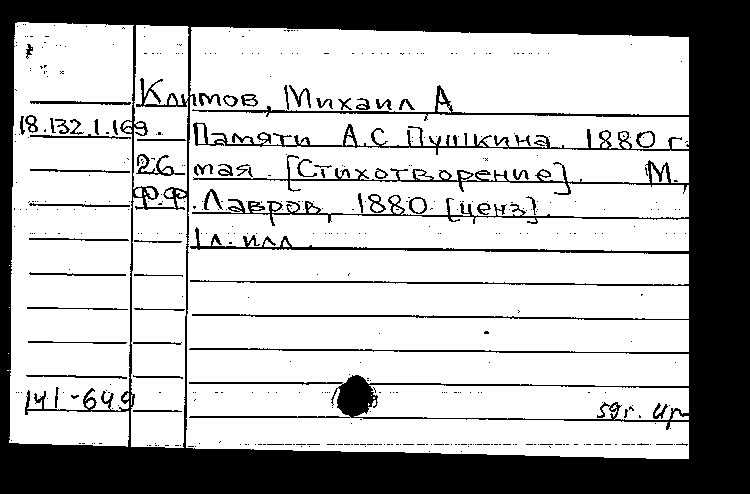 Климов, Михаил А
18.132.1.169. Памяти А.С. Пушкина. 1880 г.
26 мая. [Стихотворение]. М.,
Ф.Ф. Лавров, 1880 [ценз].
1 л. илл.
141-649
59 г.